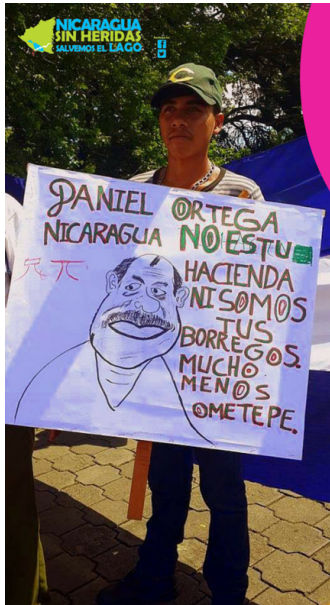 NICARAGUA
SIN HERIDAS
SALVEMOS EL LAGO
DANIEL ORTEGA
NICARAGUA NO ES TU
HACIENDA
NI SOMOS
TUS
BORREGOS.
MUCHO
MENOS
OMETEPE.